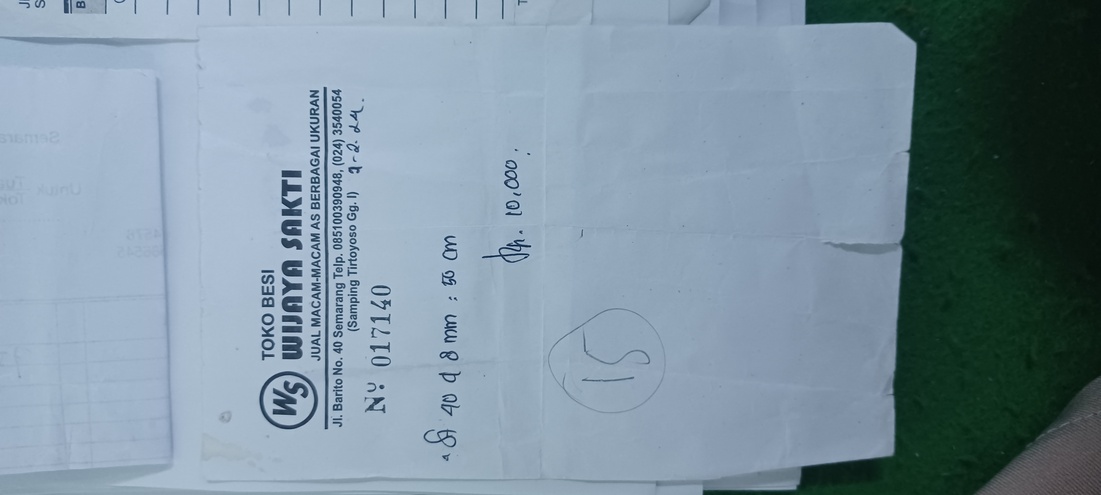 WS
TOKO BESI
WIJAYA SAKTI
JUAL MACAM-MACAM AS BERBAGAI UKURAN
Jl. Barito No. 40 Semarang Telp. 085100390948, (024) 3540054
(Samping Tirtoyoso Gg. I) 9-2-24.
No: 017140
40 d 8 mm : 50 cm
Rp. 10.000.
15